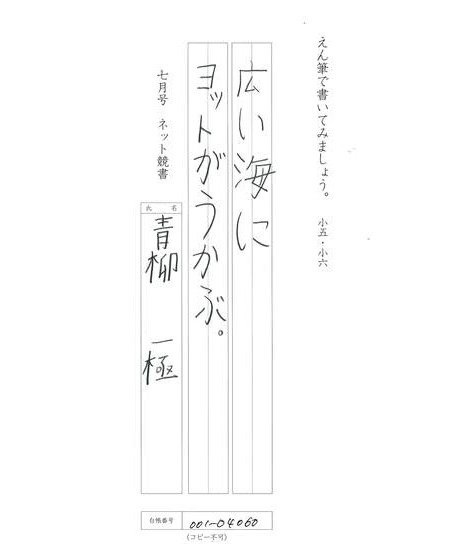 えん筆で書いてみましょう。 小五・小六
広い海に
ヨットがうかぶ。
七月号 ネット競書
氏名
青柳 一極
台帳番号 001-04060
(コピー不可)